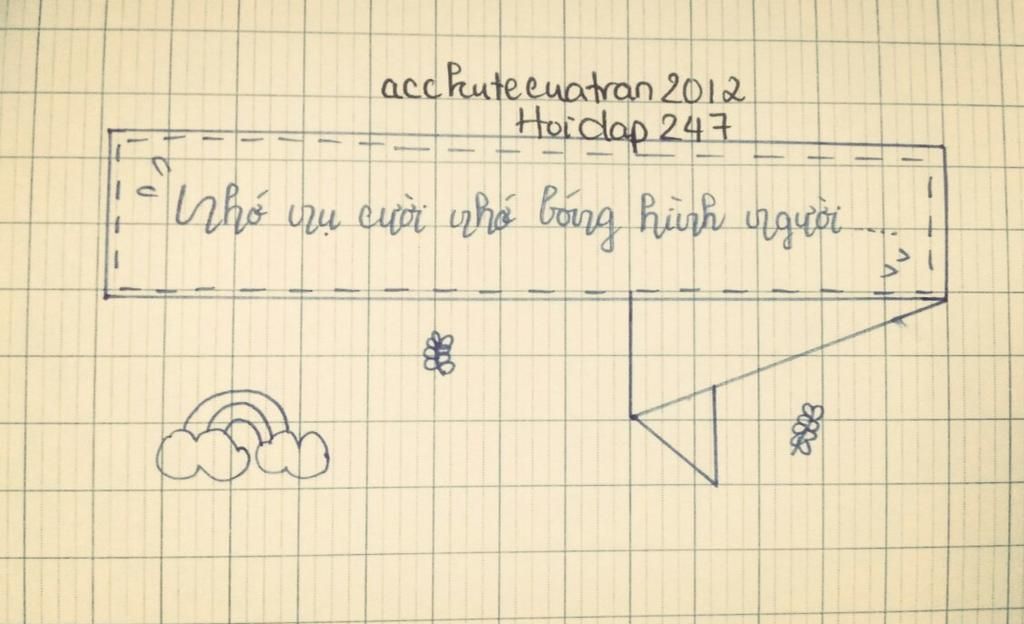 acckutecuatran2012
Hoidap247
Nhớ nụ cười nhớ bóng hình người....